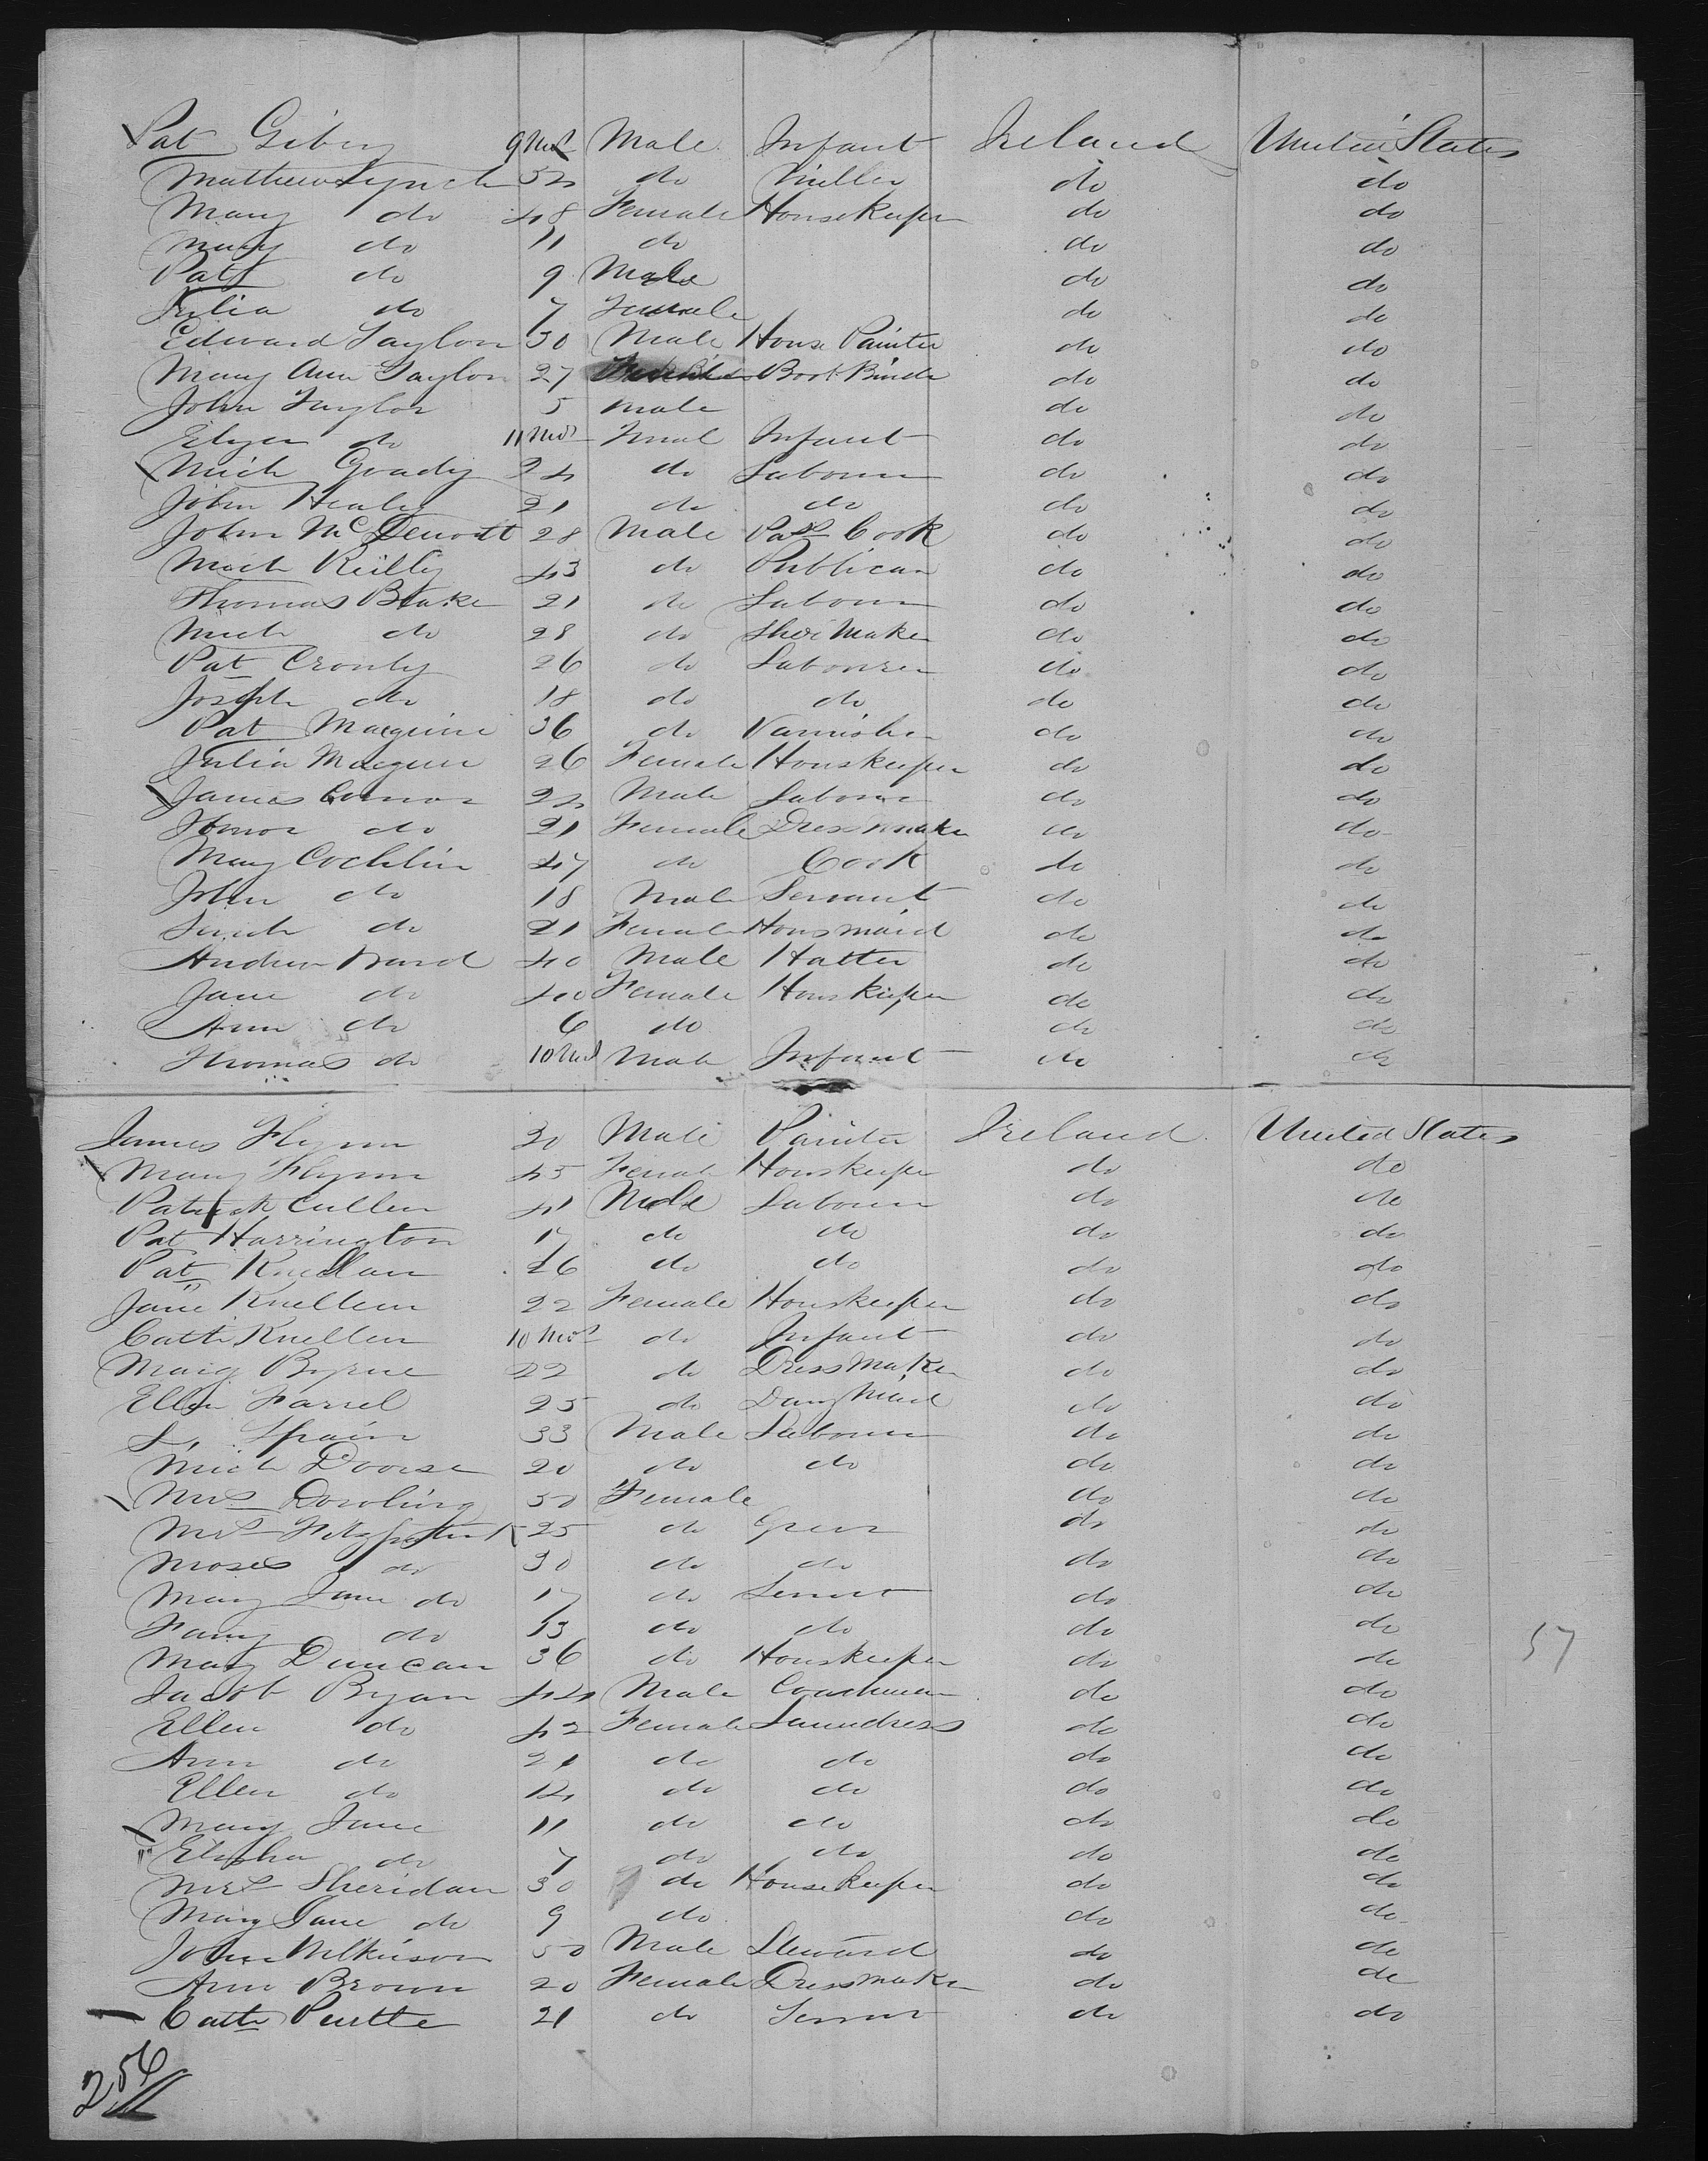 Pat Gibny 9 Mos Male Infant Ireland United States
Mathew Lynch 52 do Miller do do
Mary do 48 Female Housekeeper do do
Mary do 11 do do do
Pat do 9 Male do do
Julia do 7 Female do do
Edward Taylor 30 Male House Painter do do
Mary Ann Taylor 27 Book Binder do do
John Taylor 5 Male do do
do 11 Mos Infant do do
Mich Grady 24 do Labourer do do
John Healy 21 do do do do
John McDermott 28 Male Cook do do
Mich Reilly 43 do Publican do do
Thomas Blake 21 do Labourer do do
Mich do 28 do Shoe Maker do do
Pat Cronly 26 do Labourer do do
Joseph do 18 do do do do
Pat Maguire 36 do Varnisher do do
Julia Maguire 26 Female Houskeeper do do
James Connor 24 Male Labourer do do
Honor do 21 Female Dressmaker do do
Mary Cochlin 47 do Cook do do
John do 18 Male Servant do do
do 21 Female Housmaid do do
Andrew Ward 40 Male Hatter do do
Jane do 40 Female Houskeeper do do
Ann do 6 do do do
Thomas do 10 Mos Male Infant do do
James Flynn 30 Male Painter Ireland United States
Mary Flynn 45 Female Houskeeper do do
Patrick Cullen 41 Male Labourer do do
Pat Harrington 17 do do do do
Pat 26 do do do do
Jane Knellen 22 Female Houskeeper do do
Cath Knellen 10 Mos do Infant do do
Mary Byrne 22 do Dress Maker do do
Ellen Farrel 25 do Dairy Maid do do
Spain 33 Male Labourer do do
Mich 20 do do do do
Mrs Dowling 50 Female do do
Mrs Fitzpatrick 25 do do do
Moses do 30 do do do do
Mary Jane do 17 do Servant do do
Fany do 13 do do do do
Mary Duncan 36 do Houskeeper do do
Jacob Ryan 44 Male Coachman do do
Ellen do 42 Female Laundress do do
Ann do 21 do do do do
Ellen do 14 do do do do
Mary Jane 11 do do do do
do 7 do do do do
Mrs Sheridan 30 do Housekeeper do do
Mary Jane do 9 do do do
John Wilkinson 50 Male Steward do do
Ann Brown 20 Female Dressmaker do do
Cath 21 do Servant do do
57
256